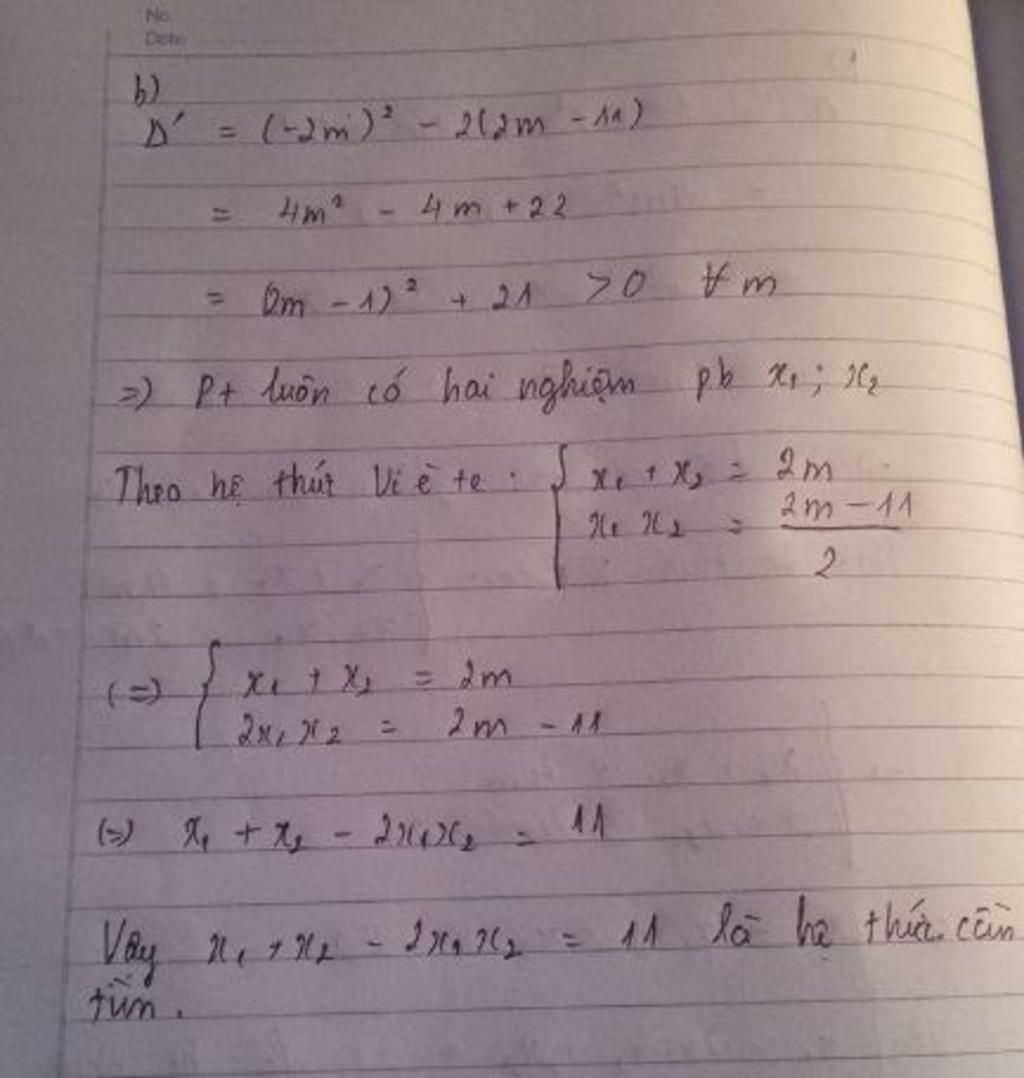 No.
Date
b)
Δ' = (-2m)² - 2(2m - 11)
= 4m² - 4m + 22
= (2m - 1)² + 21 > 0 ∀ m
=) Pt luôn có hai nghiệm pb x₁; x₂
Theo hệ thức Vi è te : { x₁ + x₂ = 2m
x₁ x₂ = (2m - 11)/2
(=) { x₁ + x₂ = 2m
2x₁ x₂ = 2m - 11
(=) x₁ + x₂ - 2x₁x₂ = 11
Vậy x₁ + x₂ - 2x₁x₂ = 11 là hệ thức cần
tìm.